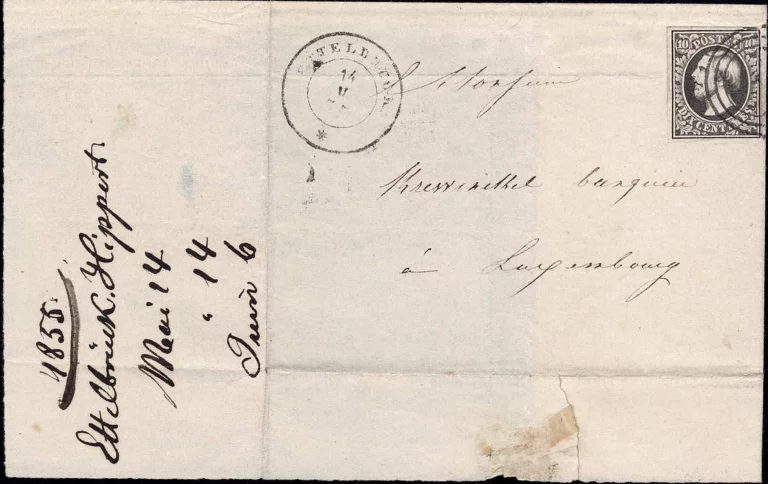 ETTELBRUCK
14
V
10 POSTES 10
DIX CENTIMES
Monsieur
Krewinkel banquier
à Luxembourg
1855.
Ettelbrück. Hippert.
Mai 14
" 14
Juin 6